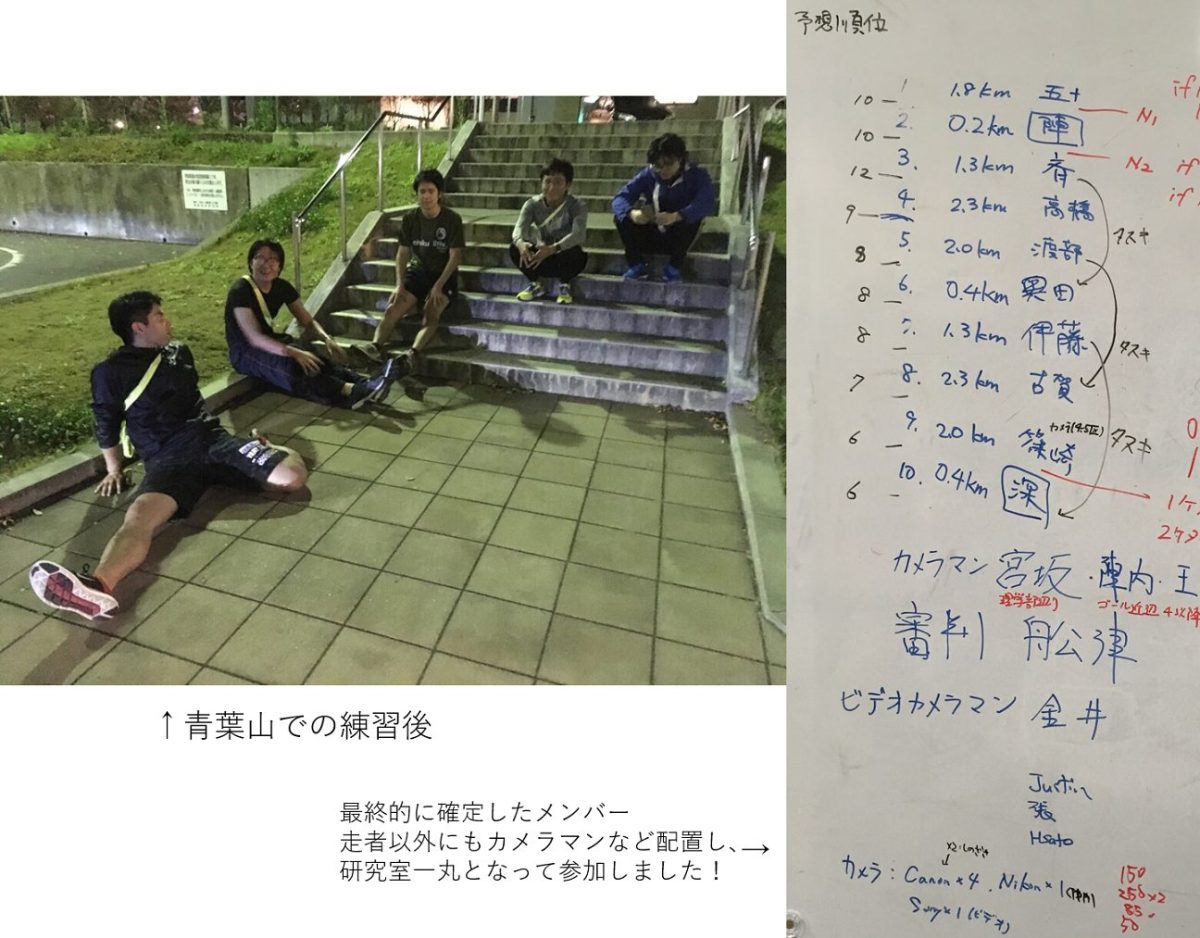 ↑青葉山での練習後
最終的に確定したメンバー
走者以外にもカメラマンなど配置し、→
研究室一丸となって参加しました！
予想順位
10 — 1. 1.8km 五十
N1
10 — 2. 0.2km 陣
N2
12 — 3. 1.3km 斉
9 — 4. 2.3km 高橋
タスキ
8 — 5. 2.0km 渡部
8 — 6. 0.4km 奥田
8 — 7. 1.3km 伊藤
タスキ
7 — 8. 2.3km 古賀
6 — 9. 2.0km 篠崎
タスキ
6 — 10. 0.4km 深
カメラマン 宮坂・陣内・王
理学部辺り ゴール近辺 4以降
審判 舩津
ビデオカメラマン 金井
Justin
張
Hsato
カメラ：Canon×4 . Nikon×1
Sony×1(ビデオ)
150
85
50